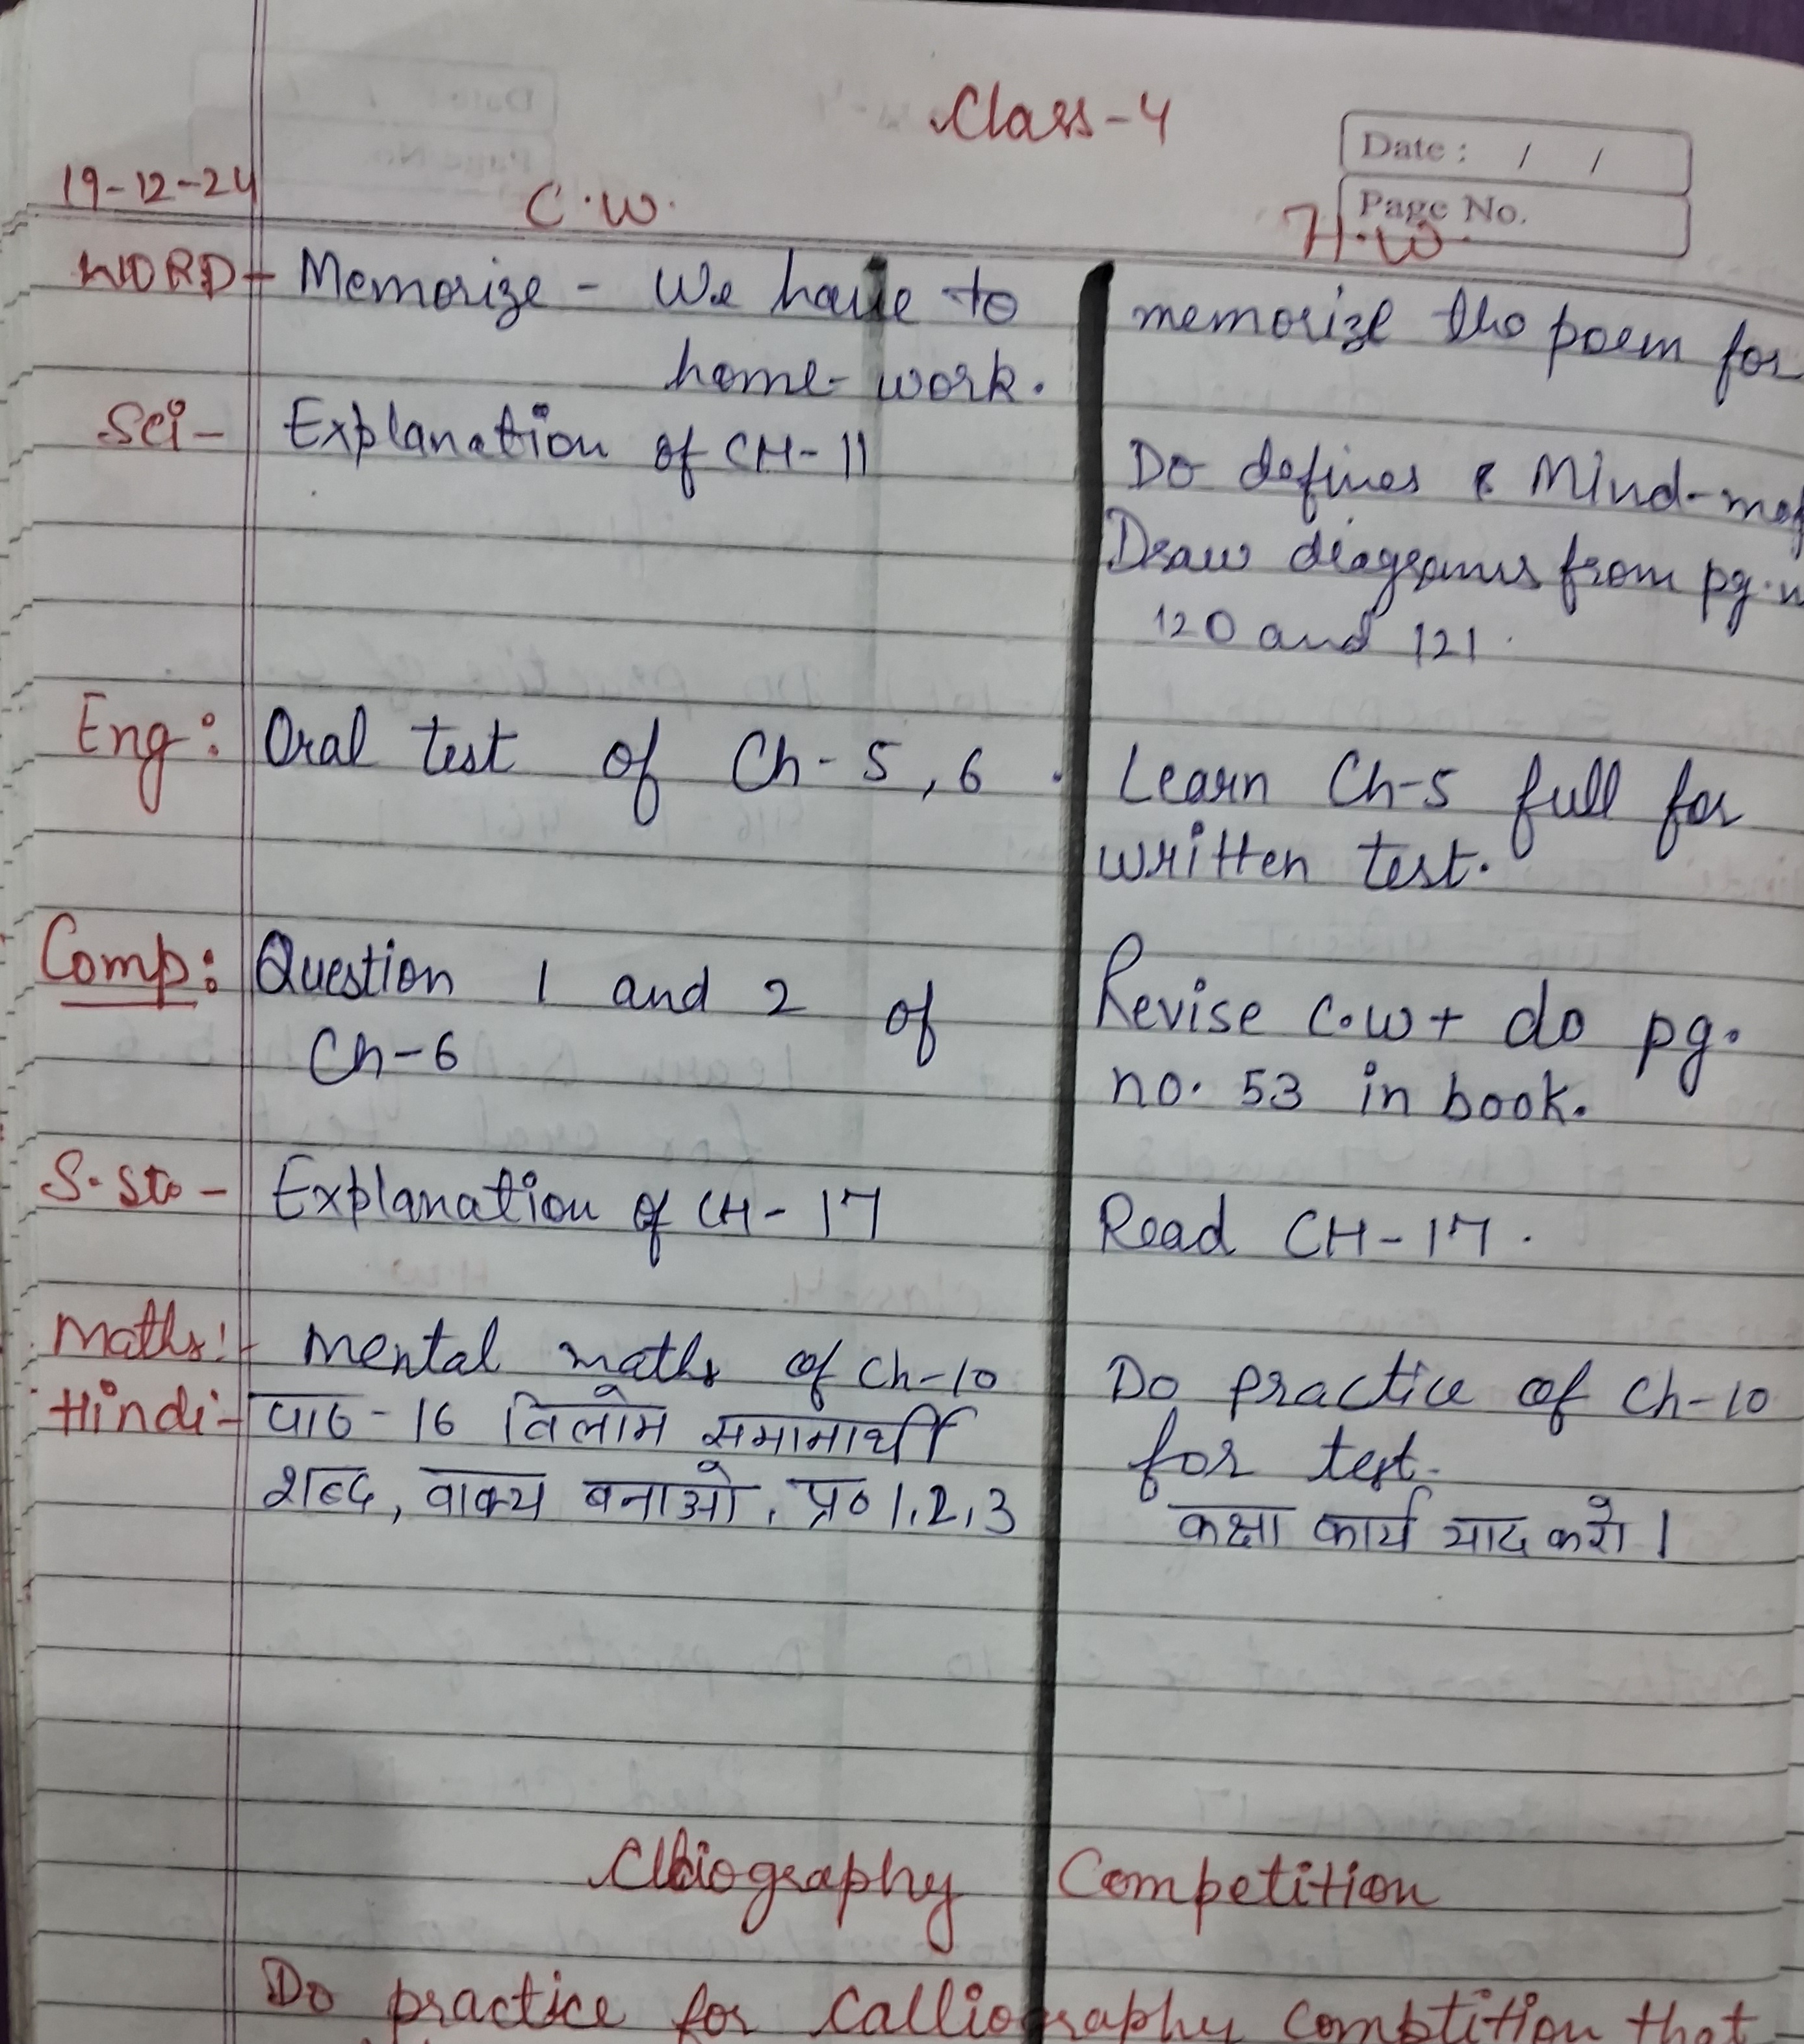 Class-4
Date : / /
Page No.
19-12-24 C.W. H.W.
WORD- Memorize - We have to memorize the poem for
home-work.
Sci- Explanation of CH-11
Do defines & Mind-map
Draw diagrams from pg.n
120 and 121.
Eng: Oral test of Ch-5,6. Learn Ch-5 full for
written test.
Comp: Question 1 and 2 of Revise C.W + do pg.
Ch-6 no. 53 in book.
S.St.- Explanation of CH-17 Read CH-17.
Maths:- Mental maths of Ch-10 Do Practice of Ch-10
for test.
Hindi- पाठ-16 विलोम समानार्थी
शब्द, वाक्य बनाओ, प्र० 1,2,3 कक्षा कार्य याद करो।
Competition
Do practice for Calliography Comptition that